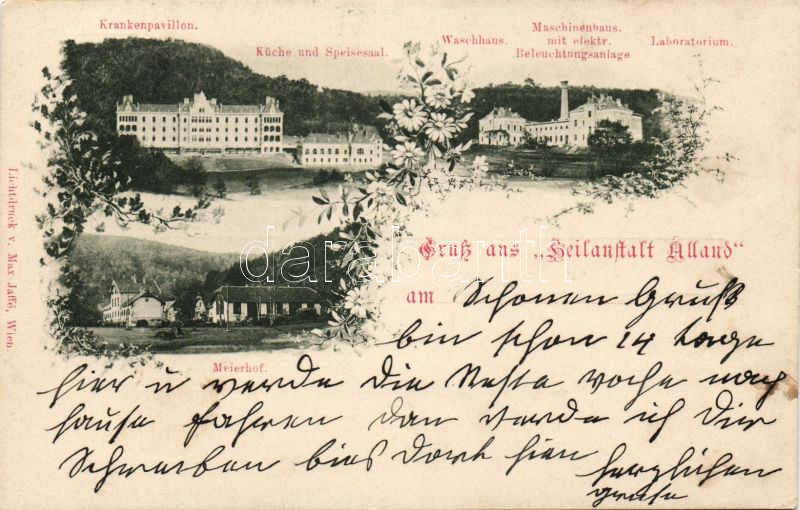 Krankenpavillon.
Küche und Speisesaal.
Waschhaus.
Maschinenhaus.
mit elektr.
Beleuchtungsanlage
Laboratorium.
Lichtdruck v. Max Jaffé, Wien
darabanth
Gruß aus „Heilanstalt Alland“
am Schönen Gruß
bin schon 14 tage
hier u werde die Neste woche nach
hause fahren dan werde ich Dier
Schreiben bies dort hien
herzlichen
grüse
Meierhof.